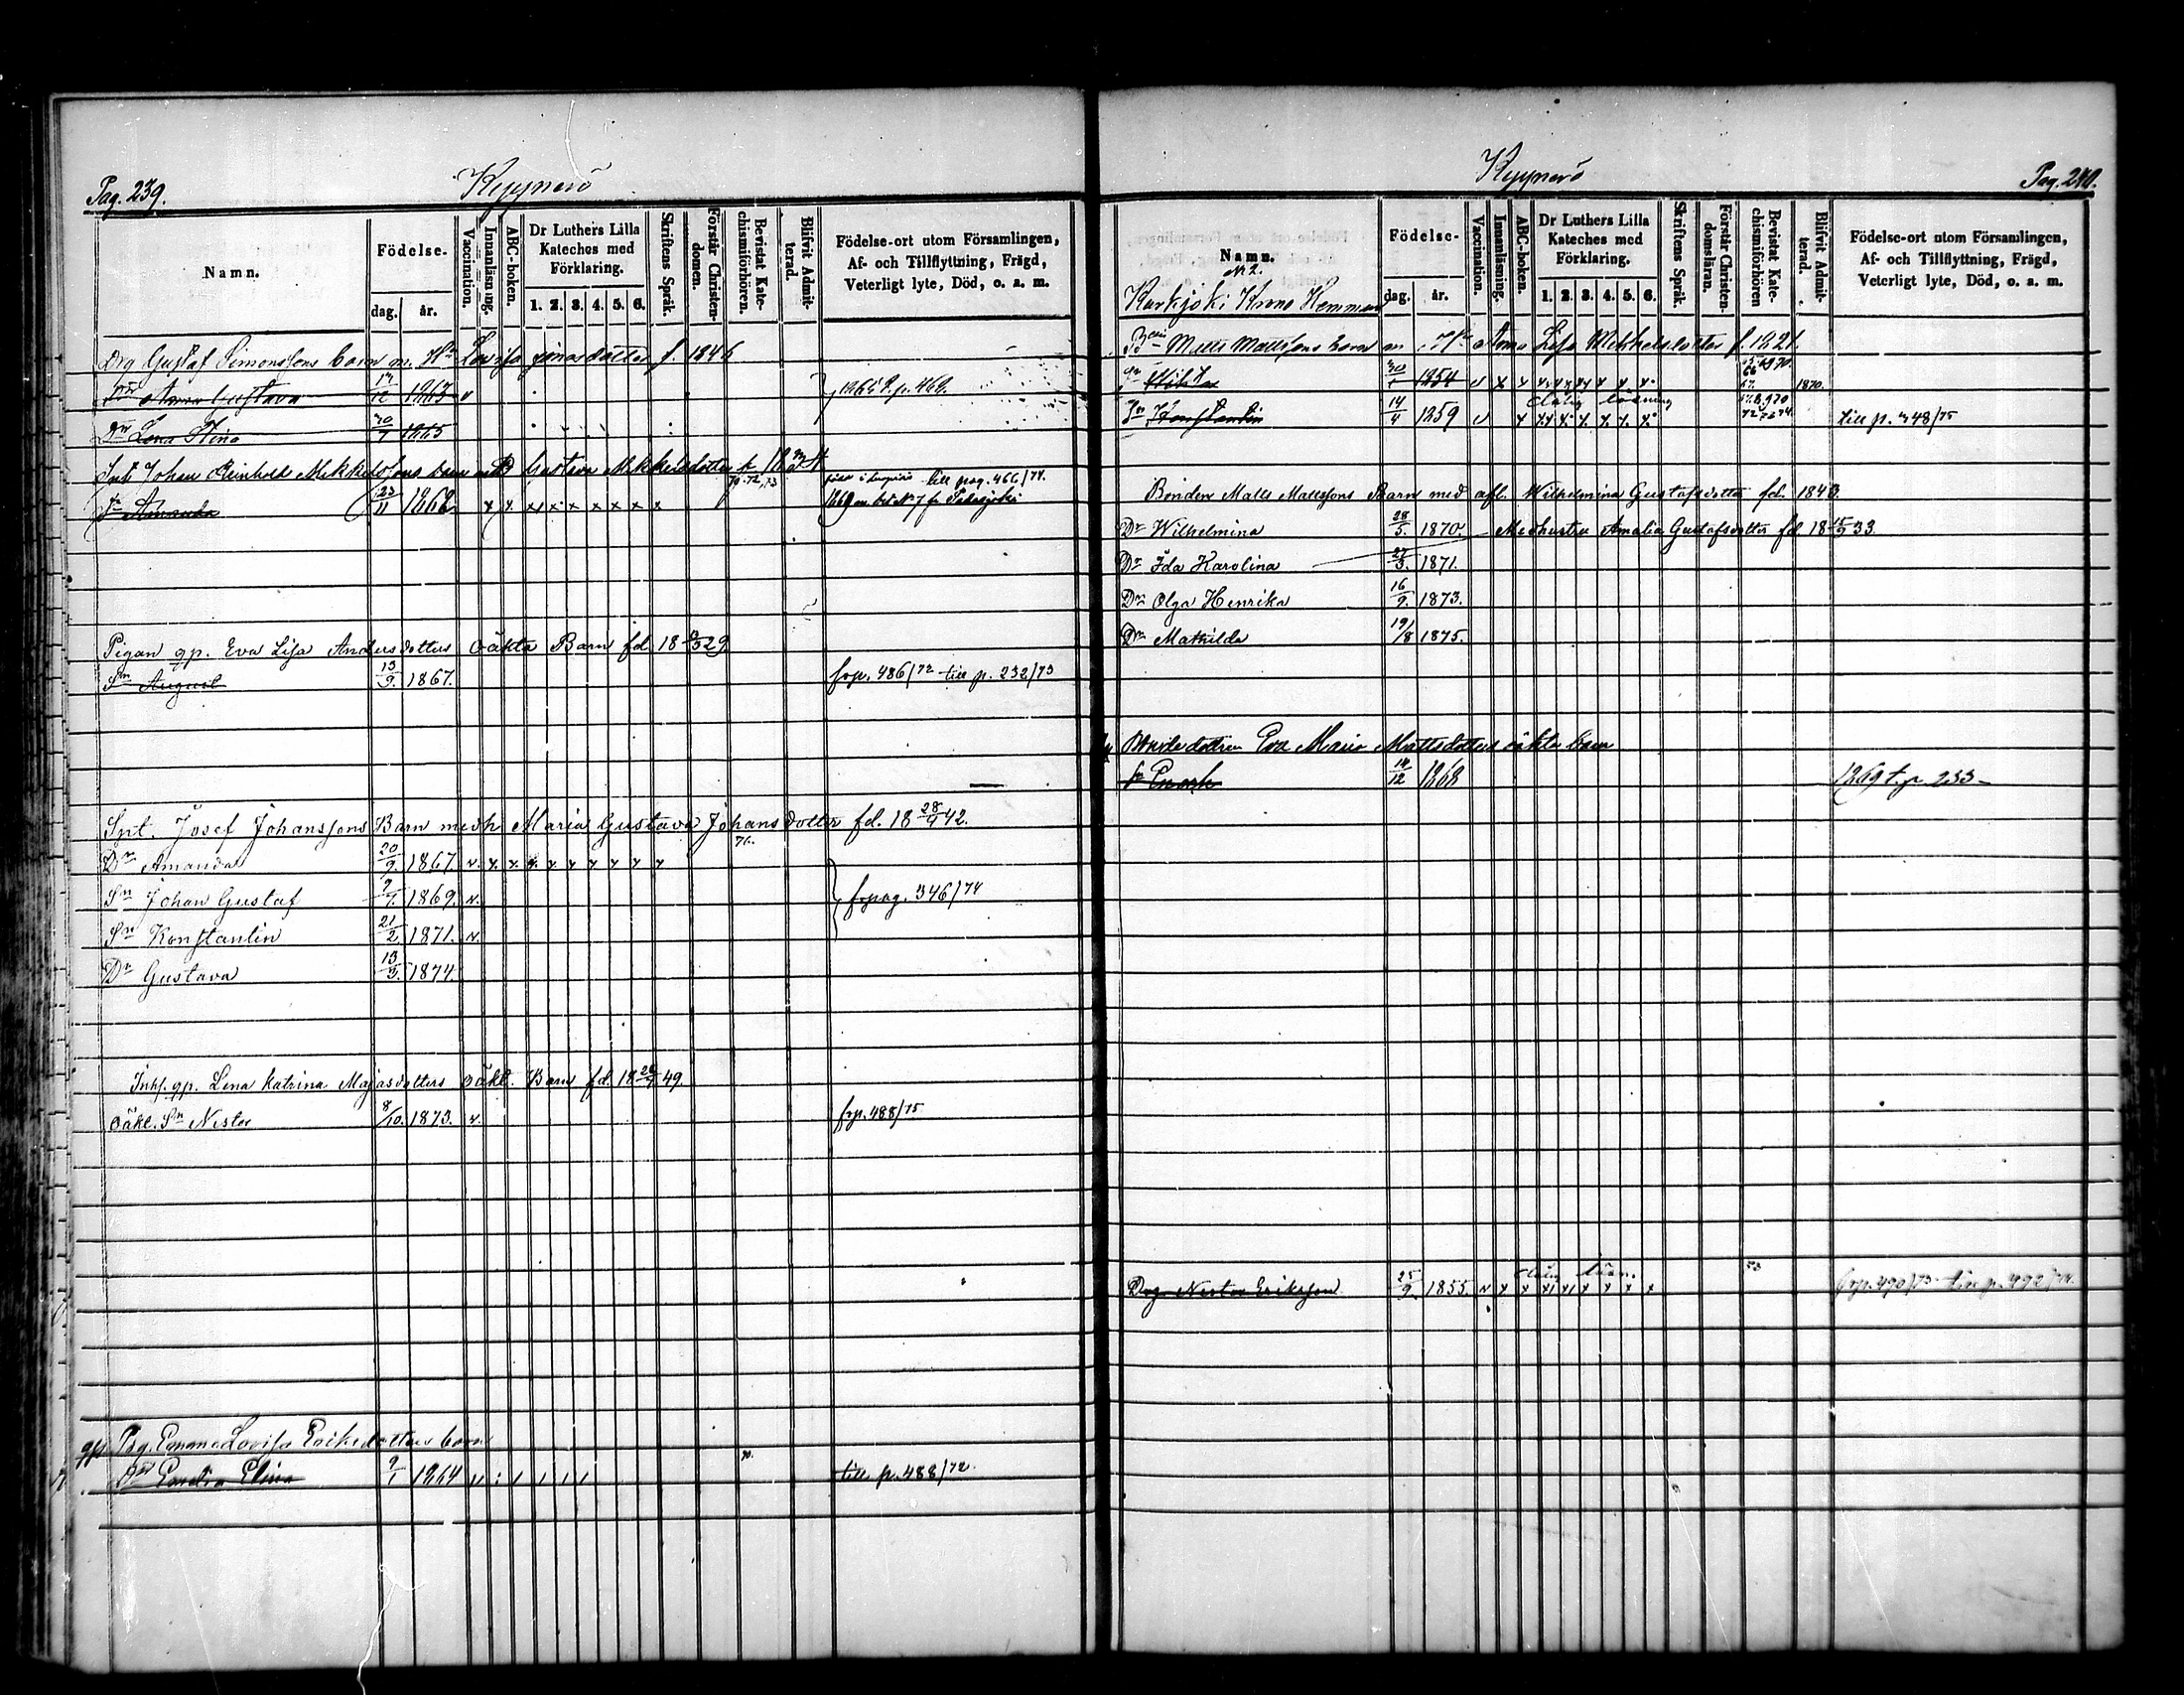 Pag. 239.
Kyynerö
Namn.
Födelse-
dag. år.
Vaccination.
Innanläsning.
ABC-boken.
Dr Luthers Lilla Kateches med Förklaring.
1. 2. 3. 4. 5. 6.
Skriftens Språk.
Förstår Christendomen.
Bevistat Katechismiförhören.
Blifvit Admitterad.
Födelse-ort utom Församlingen,
Af- och Tillflyttning, Frägd,
Veterligt lyte, Död, o. a. m.
Drg Gustaf Simonssons barn m. Hu Lovisa dotter f. 1846
Dr Anna Gustava 12 1863 v
Dr Lena Stina 30/7 1865
Johan Reinhold Mikkelssons barn Gustava Mikkelsdotter
till pag. 466/74.
Dr Amanda 23/11 1862 x x x x x x x x x
Pigan gp. Eva Lisa Andersdotters oäkta Barn fd 18 29
Sn August 13/9. 1867. frp. 486/72 till p. 232/73
Int. Josef Johanssons Barn med h Maria Gustava Johansdotter fd. 18 28/9 42.
76.
Dr Amanda 20/9. 1867. v. x x x x x x x x x
Sn Johan Gustaf 1869. v. frpag. 346/74
Sn Konstantin 21/2 1871. v.
Dr Gustava 13/3. 1874.
Inh. gp. Lena Katrina Majasdotters oäkt. Barn fd. 18 49.
oäkt. Sn Nestor 8/10. 1873. v. frp. 488/75
gp Pig. Lovisa Eriksdotters barn
70.
Elina 9/1 1864 v
till p. 488/72.
Kyynerö
Pag. 240.
Namn.
N 2.
Karkjoki Krono Hemman
Födelse-
dag. år.
Vaccination.
Innanläsning.
ABC-boken.
Dr Luthers Lilla Kateches med Förklaring.
1. 2. 3. 4. 5. 6.
Skriftens Språk.
Förstår Christendomsläran.
Bevistat Katechismiförhören
Blifvit Admitterad.
Födelse-ort utom Församlingen,
Af- och Tillflyttning, Frägd,
Veterligt lyte, Död, o. a. m.
Matts Mattssons barn m Hu Anna Lisa Mikkelsdotter f. 1821.
1854 v x x x x x x x x 1870.
dålig läsning
Sn Konstantin 14/4 1859 v x x x x x x x till p. 248/75
Bonden Matts Mattssons Barn med afl. Wilhelmina Gustafsdotter fd. 1840.
Dr Wilhelmina 28/5. 1870. Med hustru Amalia Gustafsdotter fd. 18 15/9 33.
Dr Ida Karolina 27/3. 1871.
Dr Olga Henrika 16/9. 1873.
Dr Mathilda 19/8 1875.
Bondedottren Eva Maria Mattsdotters oäkta barn
Sn Enock 14/12 1868 1869 t. p. 233
Drg Nestor Eriksson 25/9. 1855. v x x x x x x x x
73
frp. 490/73 till p. 492/74.